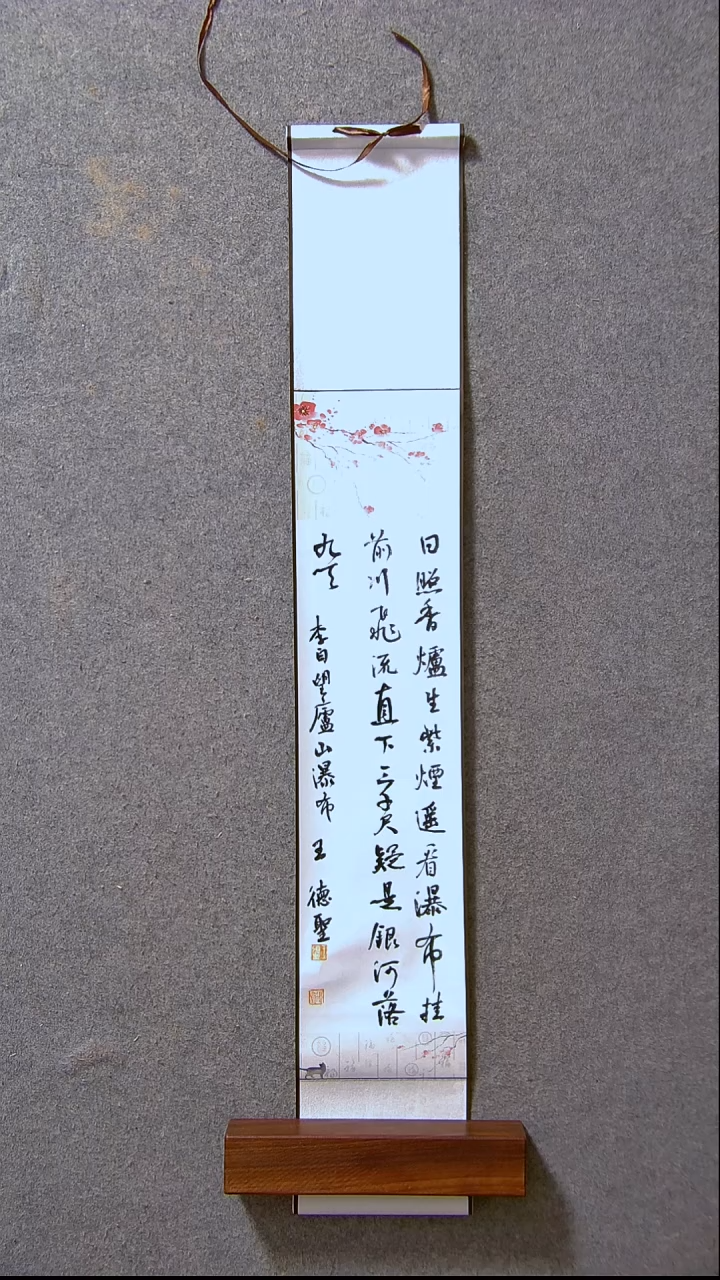 日照香爐生紫煙遥看瀑布挂
前川飛流直下三千尺疑是銀河落
九天 李白望廬山瀑布 王德聖